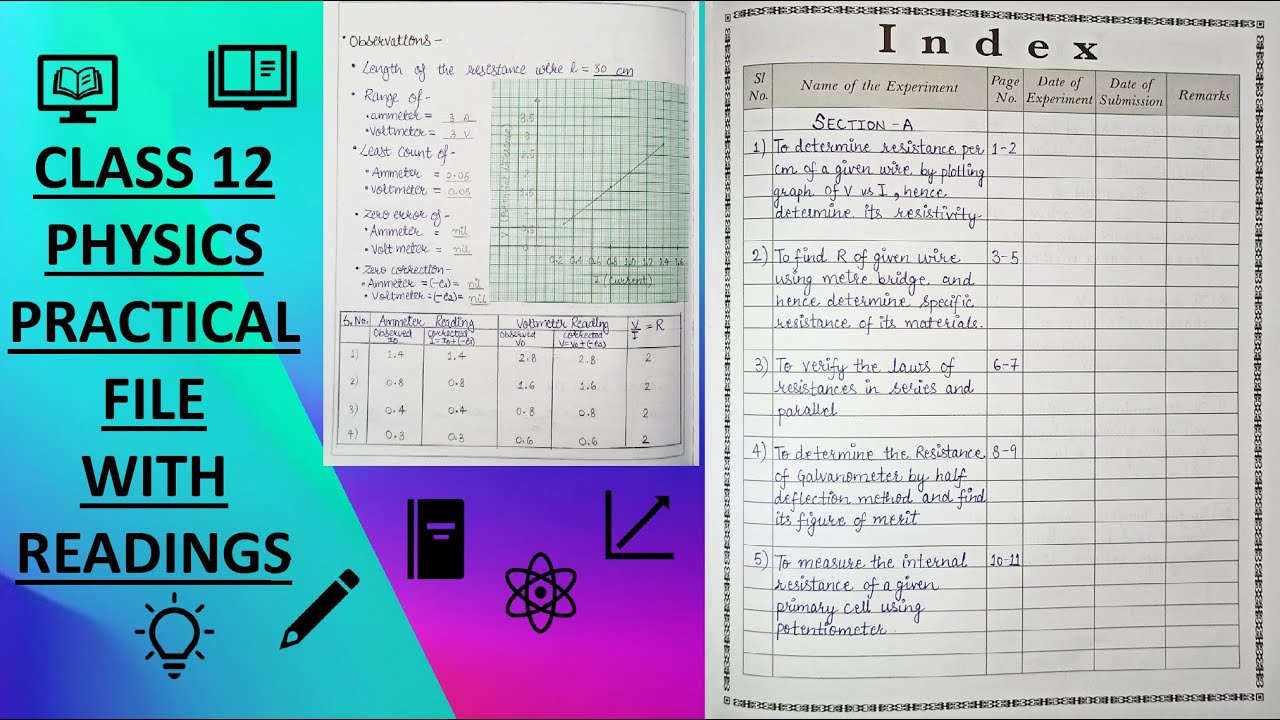 CLASS 12
PHYSICS
PRACTICAL
FILE
WITH
READINGS
• Observations –
• Length of the resistance wire l = 30 cm
• Range of –
• ammeter = 3 A
• voltmeter = 3 V
• Least count of –
• Ammeter = 0.05
• Voltmeter = 0.05
• Zero error of –
• Ammeter = nil
• Voltmeter = nil
• Zero correction –
• Ammeter = (-e₁) = nil
• Voltmeter = (-e₂) = nil
V (Potential difference)
0.2 0.4 0.6 0.8 1.0 1.2 1.4 1.6
I (Current)
S.No. Ammeter Reading Voltmeter Reading V/I = R
Observed I₀ Corrected I = I₀ + (-e₁) Observed V₀ Corrected V = V₀ + (-e₂)
1) 1.4 1.4 2.8 2.8 2
2) 0.8 0.8 1.6 1.6 2
3) 0.4 0.4 0.8 0.8 2
4) 0.3 0.3 0.6 0.6 2
Index
Sl No. Name of the Experiment Page No. Date of Experiment Date of Submission Remarks
SECTION - A
1) To determine resistance per 1-2
cm of a given wire by plotting
graph of V vs I, hence
determine its resistivity
2) To find R of given wire 3-5
using metre bridge and
hence determine specific
resistance of its materials.
3) To verify the laws of 6-7
resistances in series and
parallel
4) To determine the Resistance 8-9
of Galvanometer by half
deflection method and find
its figure of merit
5) To measure the internal 10-11
resistance of a given
primary cell using
potentiometer.